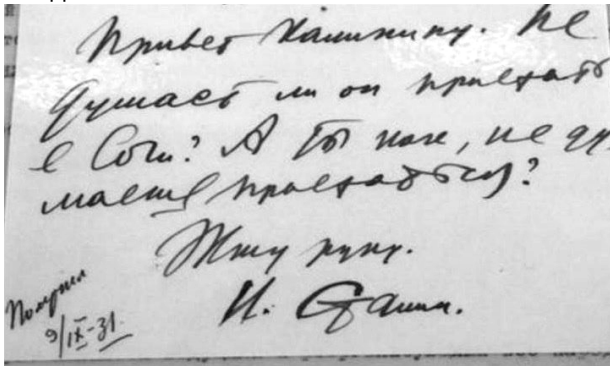 Привет Калинину. Не
думает ли он приехать
в Сочи? А ты как, не ду
маешь проехаться?
Жму руку.
И. Сталин.
Получил
9/IX-31.